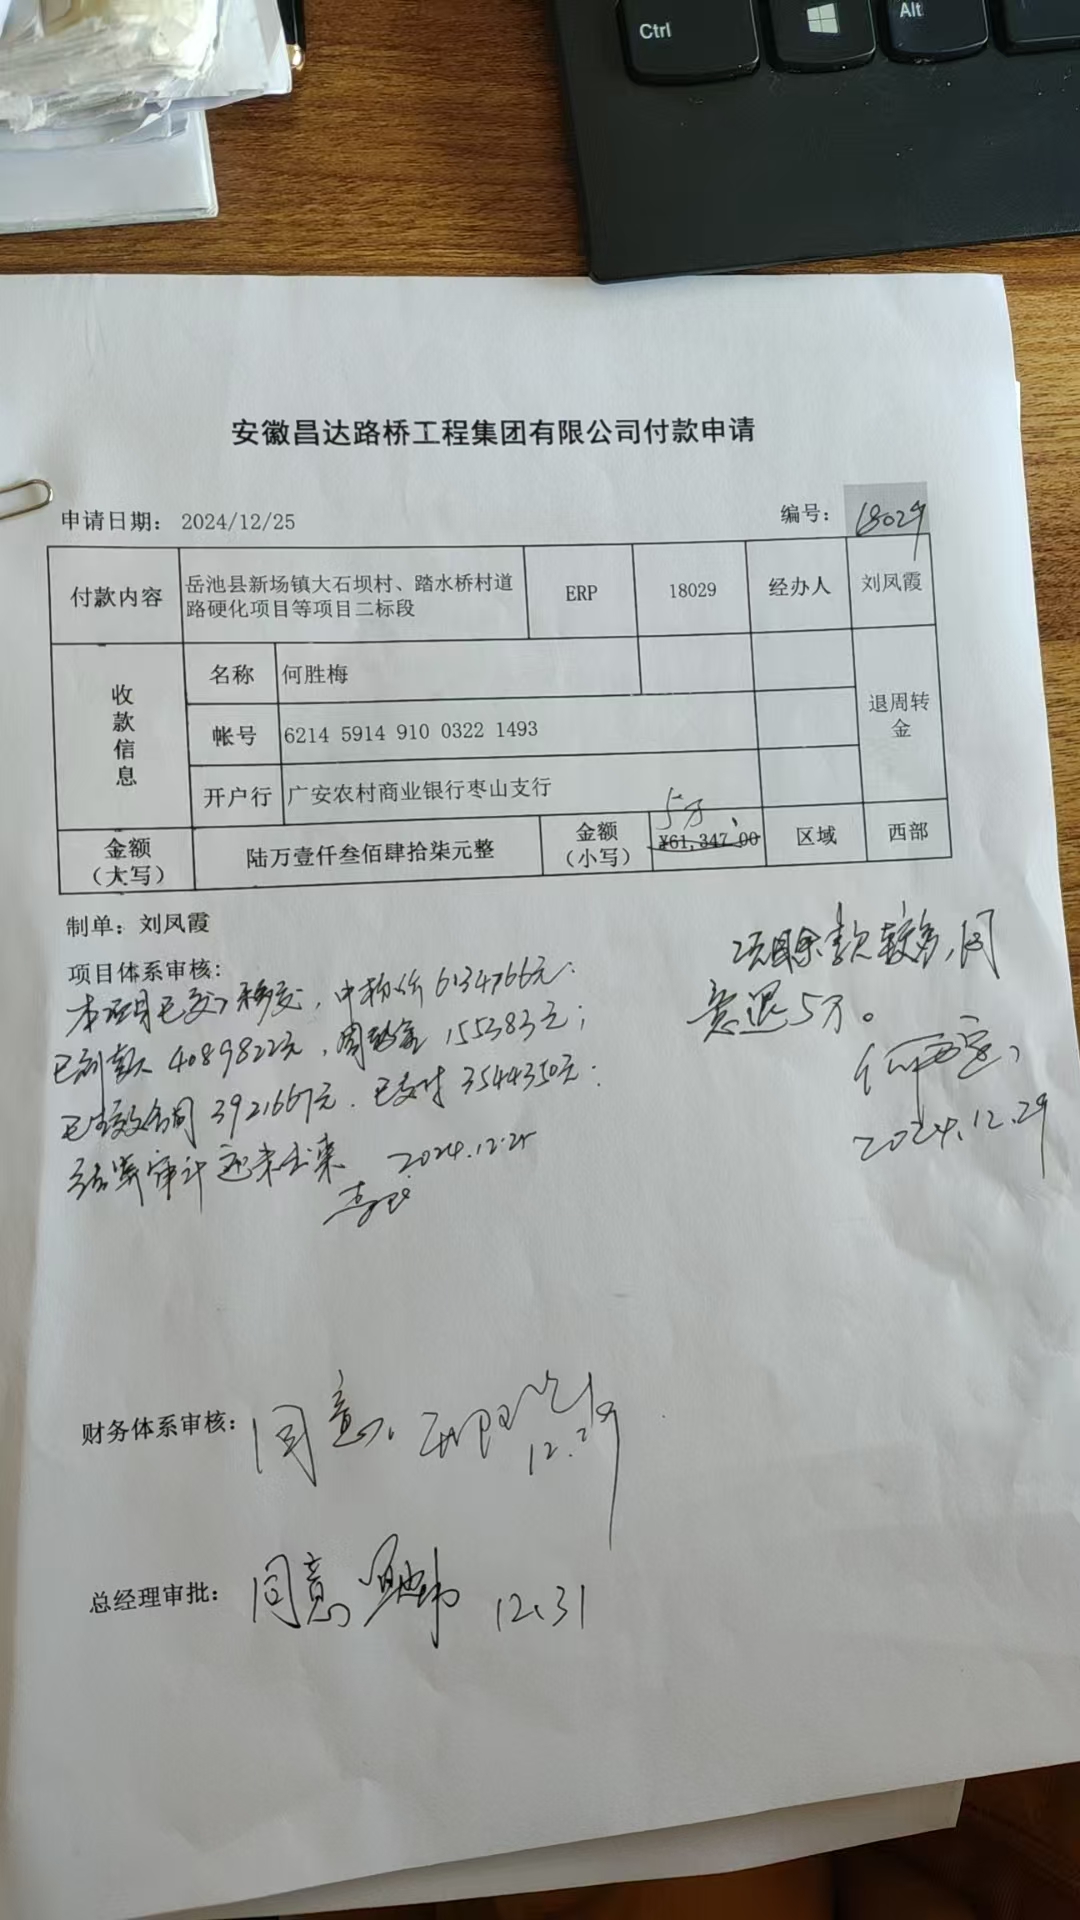 Ctrl
Alt
安徽昌达路桥工程集团有限公司付款申请
申请日期： 2024/12/25
编号： 18029
付款内容 岳池县新场镇大石坝村、踏水桥村道路硬化项目等项目二标段 ERP 18029 经办人 刘凤霞
收款信息
名称 何胜梅
帐号 6214 5914 910 0322 1493
退周转金
开户行 广安农村商业银行枣山支行
5万
金额（大写） 陆万壹仟叁佰肆拾柒元整 金额（小写） ¥61,347.00 区域 西部
制单：刘凤霞
项目体系审核：
本项目已交工移交，中标价6134766元.
已到款 4089822元，周转金 155383元；
已生效合同 3921667元. 已支付 3544350元.
结算审计还未出来 2024.12.25
项目余款较多，同
意退5万。
2024.12.29
财务体系审核： 同意.
12.29
总经理审批： 同意 12.31